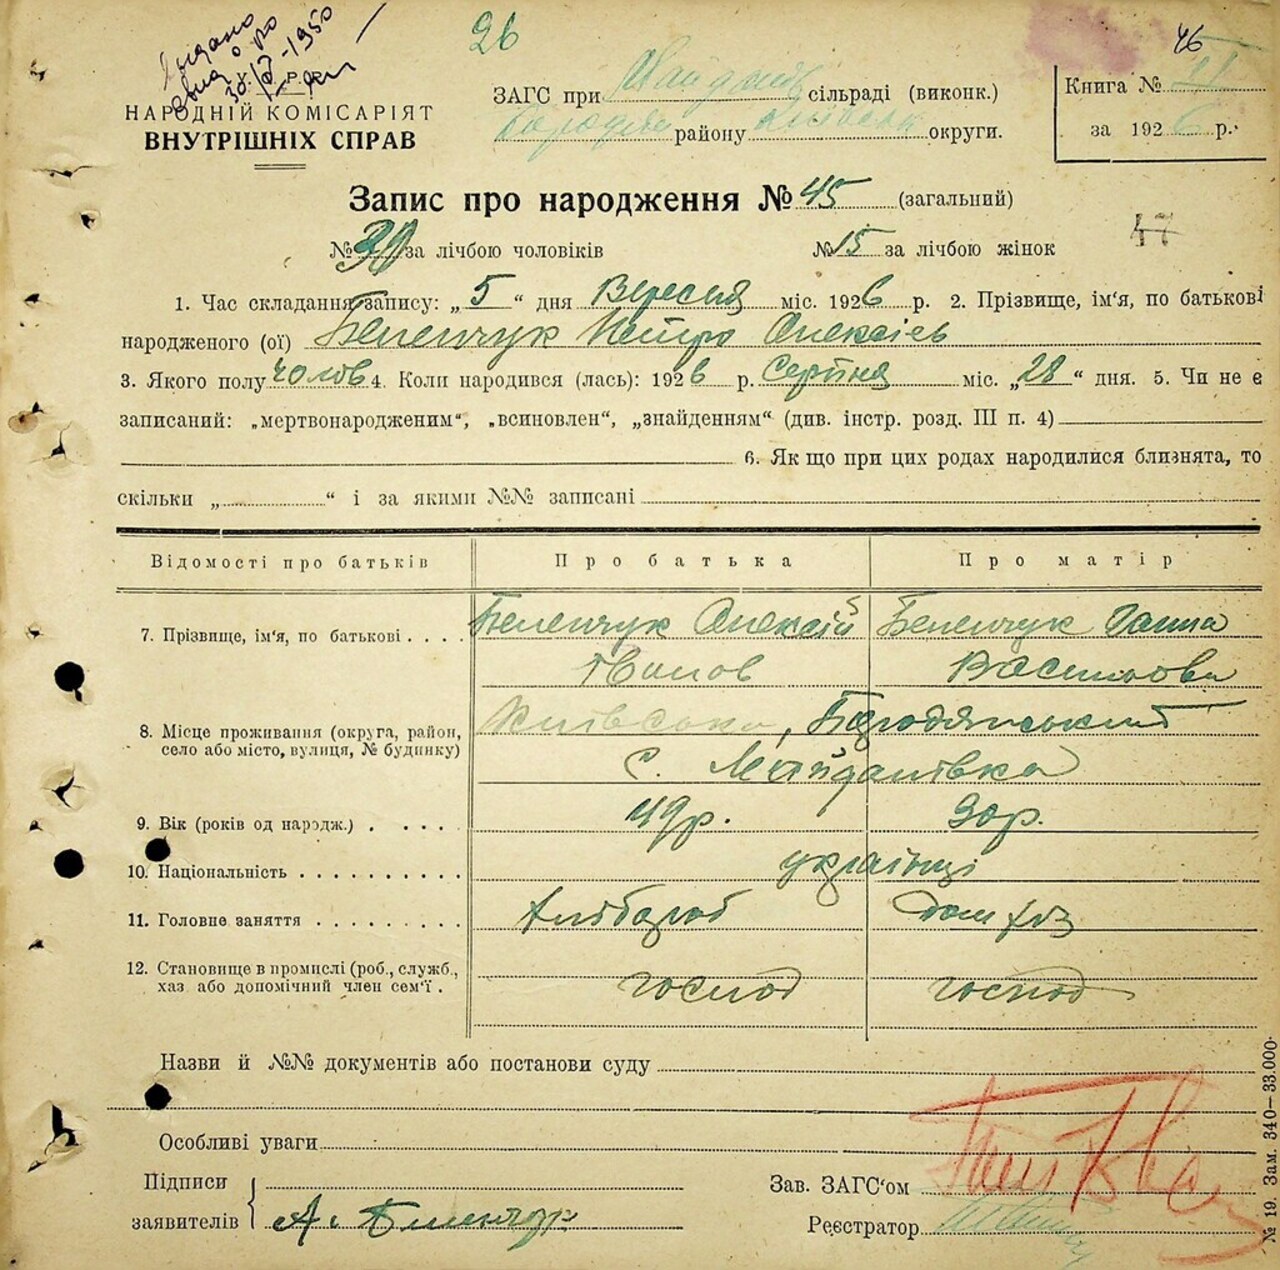 Видано
30/IV-1950
26
46
У.С.Р.Р.
НАРОДНІЙ КОМІСАРІЯТ
ВНУТРІШНІХ СПРАВ
ЗАГС при Майданів сільраді (виконк.)
Бородян району Київськ округи.
Книга №
за 1926 р.
Запис про народження № 45 (загальний)
№ 30 за лічбою чоловіків № 15 за лічбою жінок
47
1. Час складання запису: „ 5 “ дня Вересня міс. 1926 р. 2. Прізвище, ім'я, по батькові
народженого (ої) Беленчук Петро Олексіев
3. Якого полу чолов 4. Коли народився (лась): 1926 р. Серпня міс. „ 28 “ дня. 5. Чи не є
записаний: „мертвонародженим“, „всиновлен“, „знайденням“ (див. інстр. розд. III п. 4)
6. Як що при цих родах народилися близнята, то
скільки „ “ і за якими №№ записані
Відомості про батьків Про батька Про матір
7. Прізвище, ім'я, по батькові . . . . Беленчук Олексій Беленчук Ганна
Іванов Василова
8. Місце проживання (округа, район, село або місто, вулиця, № будинку) Київська, Бородянський
с. Майданівка
9. Вік (років од народж.) . . . . . 49р. 30р.
10. Національність . . . . . . . . . . українці
11. Головне заняття . . . . . . . . . Хлібороб Дом хоз
12. Становище в промислі (роб., служб., хаз або допомічний член сем'ї . господ господ
Назви й №№ документів або постанови суду
Особливі уваги
Підписи
заявителів А. Беленчук
Зав. ЗАГС'ом
Реєстратор
№ 19. Зам. 340—33.000.